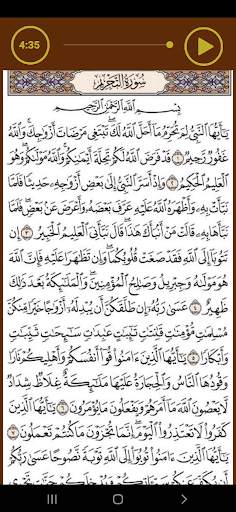 4:35
سُورَةُ التَّحۡرِيمِ
بِسۡمِ ٱللَّهِ ٱلرَّحۡمَٰنِ ٱلرَّحِيمِ
يَٰٓأَيُّهَا ٱلنَّبِيُّ لِمَ تُحَرِّمُ مَآ أَحَلَّ ٱللَّهُ لَكَۖ تَبۡتَغِي مَرۡضَاتَ أَزۡوَٰجِكَۚ وَٱللَّهُ
غَفُورٞ رَّحِيمٞ ١ قَدۡ فَرَضَ ٱللَّهُ لَكُمۡ تَحِلَّةَ أَيۡمَٰنِكُمۡۚ وَٱللَّهُ مَوۡلَىٰكُمۡۖ وَهُوَ
ٱلۡعَلِيمُ ٱلۡحَكِيمُ ٢ وَإِذۡ أَسَرَّ ٱلنَّبِيُّ إِلَىٰ بَعۡضِ أَزۡوَٰجِهِۦ حَدِيثٗا فَلَمَّا
نَبَّأَتۡ بِهِۦ وَأَظۡهَرَهُ ٱللَّهُ عَلَيۡهِ عَرَّفَ بَعۡضَهُۥ وَأَعۡرَضَ عَنۢ بَعۡضٖۖ فَلَمَّا
نَبَّأَهَا بِهِۦ قَالَتۡ مَنۡ أَنۢبَأَكَ هَٰذَاۖ قَالَ نَبَّأَنِيَ ٱلۡعَلِيمُ ٱلۡخَبِيرُ ٣ إِن تَتُوبَآ
إِلَى ٱللَّهِ فَقَدۡ صَغَتۡ قُلُوبُكُمَاۖ وَإِن تَظَٰهَرَا عَلَيۡهِ فَإِنَّ ٱللَّهَ
هُوَ مَوۡلَىٰهُ وَجِبۡرِيلُ وَصَٰلِحُ ٱلۡمُؤۡمِنِينَۖ وَٱلۡمَلَٰٓئِكَةُ بَعۡدَ ذَٰلِكَ
ظَهِيرٌ ٤ عَسَىٰ رَبُّهُۥٓ إِن طَلَّقَكُنَّ أَن يُبۡدِلَهُۥٓ أَزۡوَٰجًا خَيۡرٗا مِّنكُنَّ
مُسۡلِمَٰتٖ مُّؤۡمِنَٰتٖ قَٰنِتَٰتٖ تَٰٓئِبَٰتٍ عَٰبِدَٰتٖ سَٰٓئِحَٰتٖ ثَيِّبَٰتٖ
وَأَبۡكَارٗا ٥ يَٰٓأَيُّهَا ٱلَّذِينَ ءَامَنُواْ قُوٓاْ أَنفُسَكُمۡ وَأَهۡلِيكُمۡ نَارٗا
وَقُودُهَا ٱلنَّاسُ وَٱلۡحِجَارَةُ عَلَيۡهَا مَلَٰٓئِكَةٌ غِلَاظٞ شِدَادٞ
لَّا يَعۡصُونَ ٱللَّهَ مَآ أَمَرَهُمۡ وَيَفۡعَلُونَ مَا يُؤۡمَرُونَ ٦ يَٰٓأَيُّهَا ٱلَّذِينَ
كَفَرُواْ لَا تَعۡتَذِرُواْ ٱلۡيَوۡمَۖ إِنَّمَا تُجۡزَوۡنَ مَا كُنتُمۡ تَعۡمَلُونَ ٧
يَٰٓأَيُّهَا ٱلَّذِينَ ءَامَنُواْ تُوبُوٓاْ إِلَى ٱللَّهِ تَوۡبَةٗ نَّصُوحًا عَسَىٰ رَبُّكُمۡ